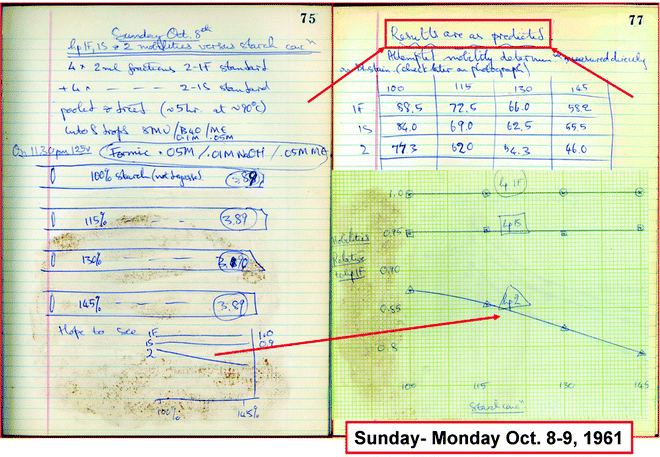 75
Sunday Oct. 8th
hp 1F, 1S & 2 mobilities versus starch concn
4 x 2ml fractions 2-1F standard
+ 4 x - - - 2-1S standard
pooled & dried (~5hr. at ~90°C)
into 8 drops 8MU/B40/ME
0.1M .05M
On 11.30pm 125V Formic .05M/.01M NaOH/.05M ME
100% starch (not degassed) 3.89
115% — — 3.89
130% — —
145% — — 3.89
Hope to see 1F 1.0
1S 0.9
2
100% 145%
77
Results are as predicted.
Attempted mobility determn measured directly
(check later on photograph)
100 115 130 145
1F 88.5 72.5 66.0 58.2
1S 84.0 69.0 62.5 55.5
2 77.3 62.0 54.3 46.0
1.0 hp 1F
0.95 hp 1S
Mobilities
Relative
to hp 1F
0.90
0.85 hp 2
0.8
100 115 130 145
Starch concn
Sunday- Monday Oct. 8-9, 1961